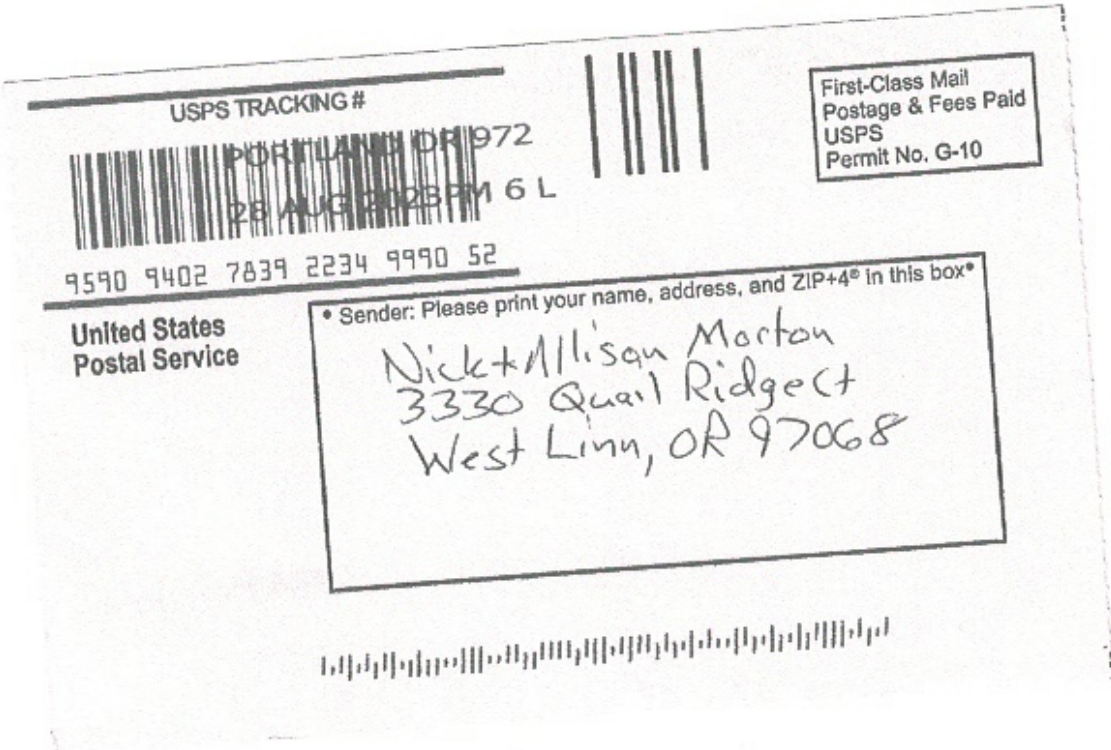 USPS TRACKING #
PORTLAND OR 972
28 AUG 2023 PM 6 L
9590 9402 7839 2234 9990 52
First-Class Mail
Postage & Fees Paid
USPS
Permit No. G-10
United States
Postal Service
• Sender: Please print your name, address, and ZIP+4® in this box•
Nick + Allison Morton
3330 Quail Ridge Ct
West Linn, OR 97068